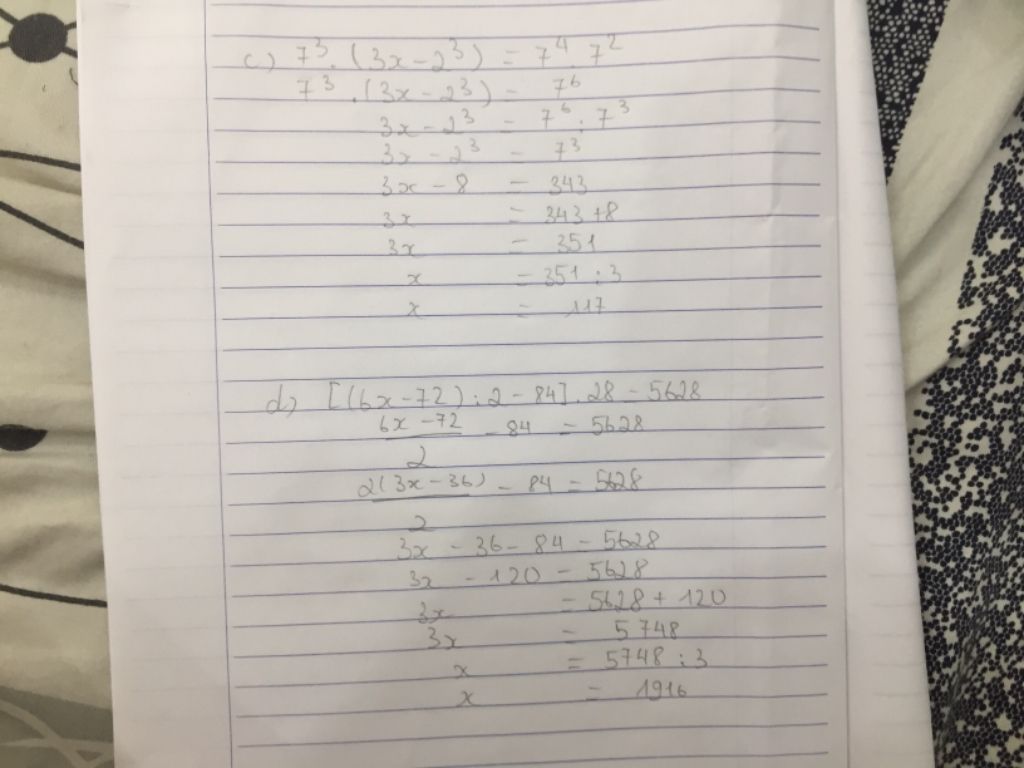 c) 7³. (3x - 2³) = 7⁴. 7²
7³ .(3x - 2³) = 7⁶
3x - 2³ = 7⁶ : 7³
3x - 2³ = 7³
3x - 8 = 343
3x = 343 + 8
3x = 351
x = 351 : 3
x = 117
d) [(6x - 72) : 2 - 84] . 28 = 5628
6x - 72 - 84 = 5628
2
2(3x - 36) - 84 = 5628
2
3x - 36 - 84 = 5628
3x - 120 = 5628
3x = 5628 + 120
3x = 5748
x = 5748 : 3
x = 1916